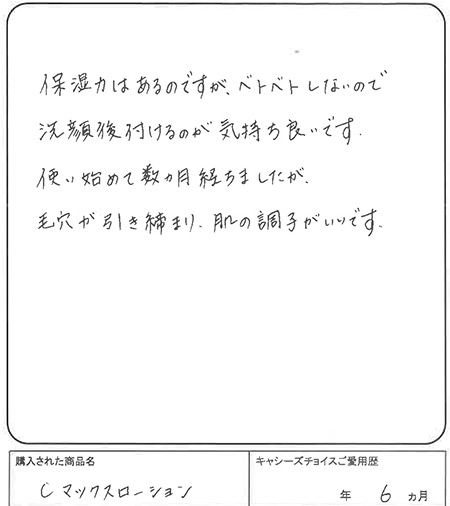 保湿力はあるのですが、ベトベトしないので
洗顔後付けるのが気持ち良いです.
使い始めて数ヵ月経ちましたが、
毛穴が引き締まり、肌の調子がいいです.
購入された商品名
キャシーズチョイスご愛用歴
Cマックスローション
年 6 ヵ月